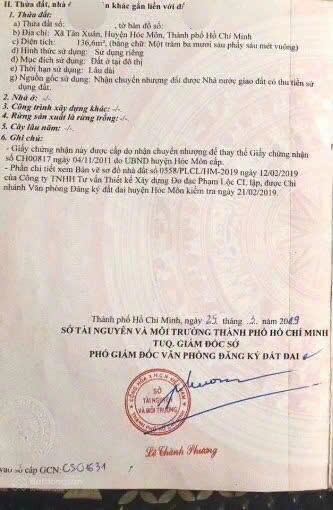 II. Thửa đất, nhà ở khác gắn liền với đ
1. Thửa đất:
a) Thửa đất số: , tờ bản đồ số:
b) Địa chỉ: Xã Tân Xuân, Huyện Hóc Môn, Thành phố Hồ Chí Minh
c) Diện tích: 136,6m², (bằng chữ: Một trăm ba mươi sáu phẩy sáu mét vuông)
d) Hình thức sử dụng: Sử dụng riêng
đ) Mục đích sử dụng: Đất ở tại đô thị
e) Thời hạn sử dụng: Lâu dài
g) Nguồn gốc sử dụng: Nhận chuyển nhượng đất được Nhà nước giao đất có thu tiền sử
dụng đất.
2. Nhà ở: -/-
3. Công trình xây dựng khác: -/-
4. Rừng sản xuất là rừng trồng: -/-
5. Cây lâu năm: -/-
6. Ghi chú:
- Giấy chứng nhận này được cấp do nhận chuyển nhượng để thay thế Giấy chứng nhận
số CH00817 ngày 04/11/2011 do UBND huyện Hóc Môn cấp.
- Phần chi tiết xem Bản vẽ sơ đồ nhà đất số 0558/PLCL/HM-2019 ngày 12/02/2019
của Công ty TNHH Tư vấn Thiết kế Xây dựng Đo đạc Phạm Lộc CL lập, được Chi
nhánh Văn phòng Đăng ký đất đai huyện Hóc Môn kiểm tra ngày 21/02/2019.
Thành phố Hồ Chí Minh, ngày 25 tháng 2 năm 2019
SỞ TÀI NGUYÊN VÀ MÔI TRƯỜNG THÀNH PHỐ HỒ CHÍ MINH
TUQ. GIÁM ĐỐC SỞ
PHÓ GIÁM ĐỐC VĂN PHÒNG ĐĂNG KÝ ĐẤT ĐAI
SỞ
TÀI NGUYÊN
VÀ MÔI TRƯỜNG
Lê Thành Phương
vào sổ cấp GCN: CS01631
Batdongsan